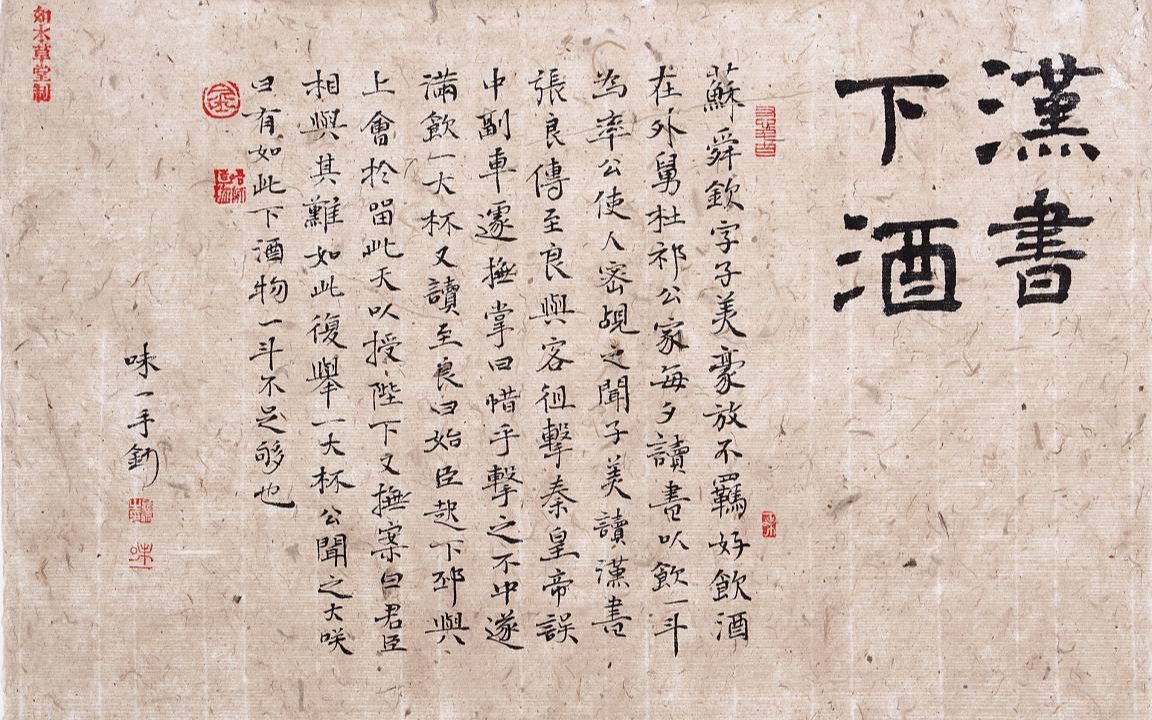 漢書
下酒
蘇舜欽字子美豪放不羈好飲酒
在外舅杜祁公家每夕讀書以飲一斗
為率公使人密覘之聞子美讀漢書
張良傳至良與客徂擊秦皇帝誤
中副車遽撫掌曰惜乎擊之不中遂
滿飲一大杯又讀至良曰始臣起下邳與
上會於留此天以授陛下又撫案曰君臣
相與其難如此復舉一大杯公聞之大咲
曰有如此下酒物一斗不足够也
味一手鈔
味一
如水草堂制